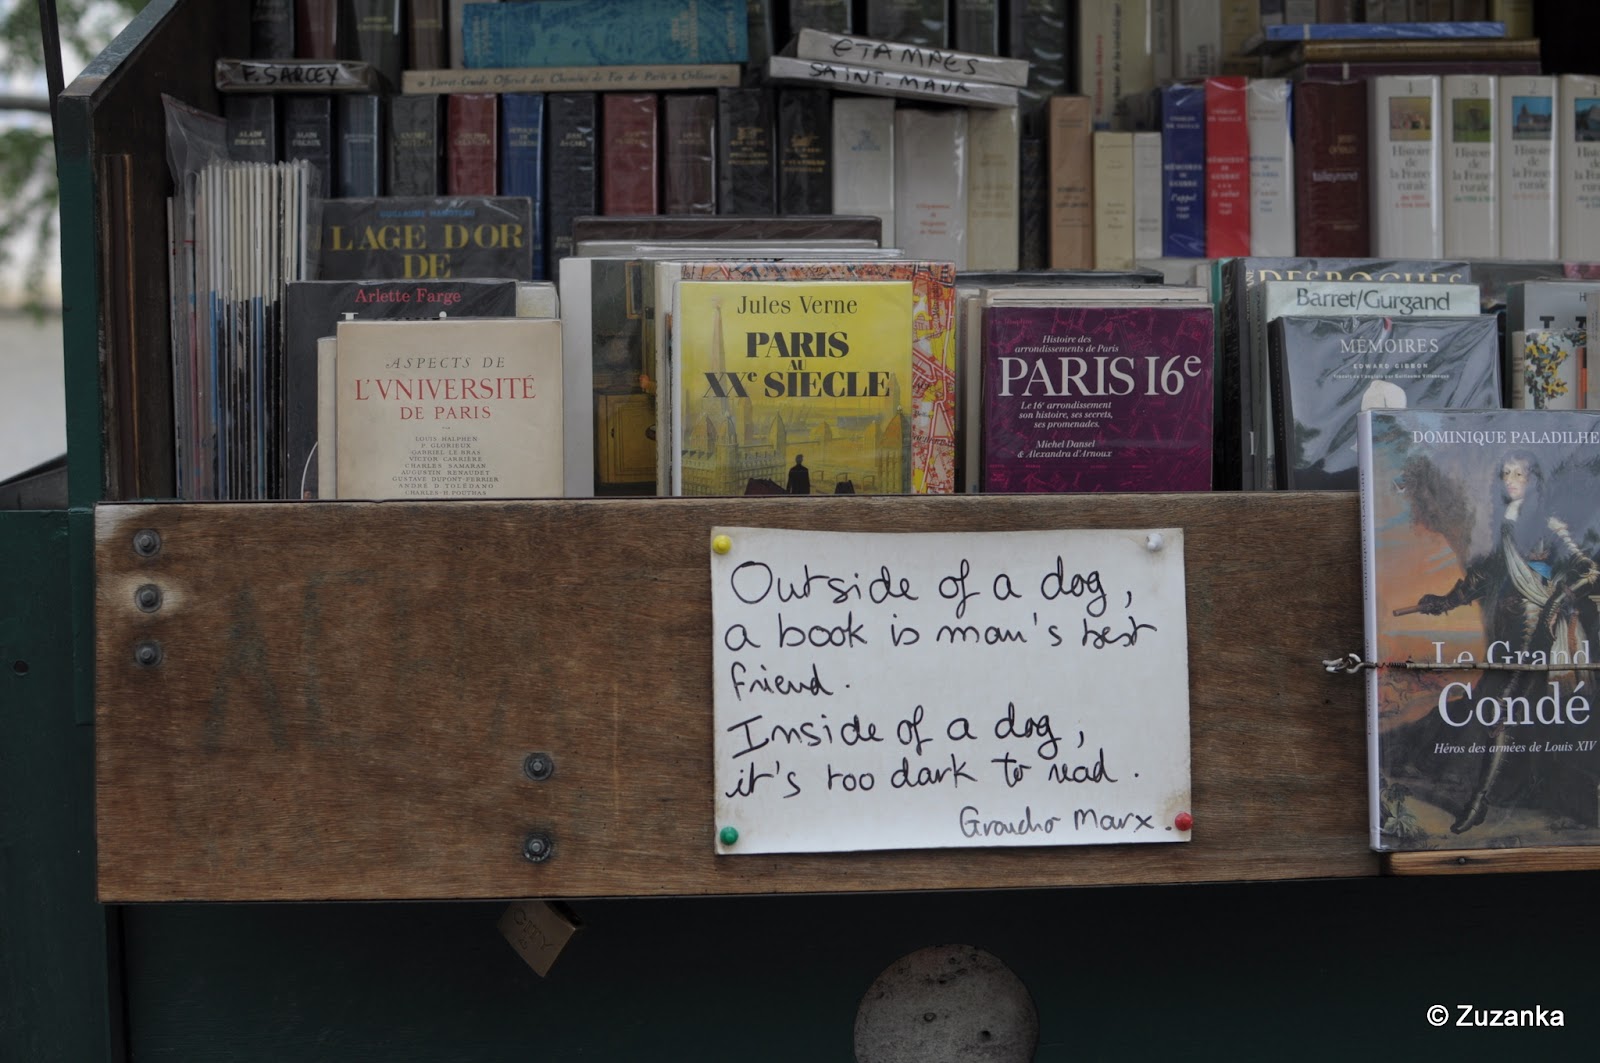 ETAMPES
F. SARCEY
SAINT-MAUR
Livret-Guide Officiel des Chemins de Fer de Paris à Orléans
talleyrand
Histoire
de
la France
rurale
Histoire
de
la France
rurale
Histoire
de
la France
rurale
GUILLAUME HANOTEAU
L'AGE D'OR
DE
Arlette Farge
ASPECTS DE
L'VNIVERSITÉ
DE PARIS
LOUIS HALPHEN
P. GLORIEUX
GABRIEL LE BRAS
VICTOR CARRIÈRE
CHARLES SAMARAN
AUGUSTIN RENAUDET
GUSTAVE DUPONT-FERRIER
ANDRÉ D. TOLÉDANO
CHARLES-H. POUTHAS
Jules Verne
PARIS
AU
XXe SIECLE
Histoire des
arrondissements de Paris
PARIS 16e
Le 16e arrondissement
son histoire, ses secrets,
ses promenades.
Michel Dansel
& Alexandra d'Arnoux
DESROCHES
Barret/Gurgand
MÉMOIRES
EDWARD GIBBON
DOMINIQUE PALADILHE
Le Grand
Condé
Héros des armées de Louis XIV
Outside of a dog,
a book is man's best
friend.
Inside of a dog,
it's too dark to read.
Groucho Marx.
CITY
© Zuzanka